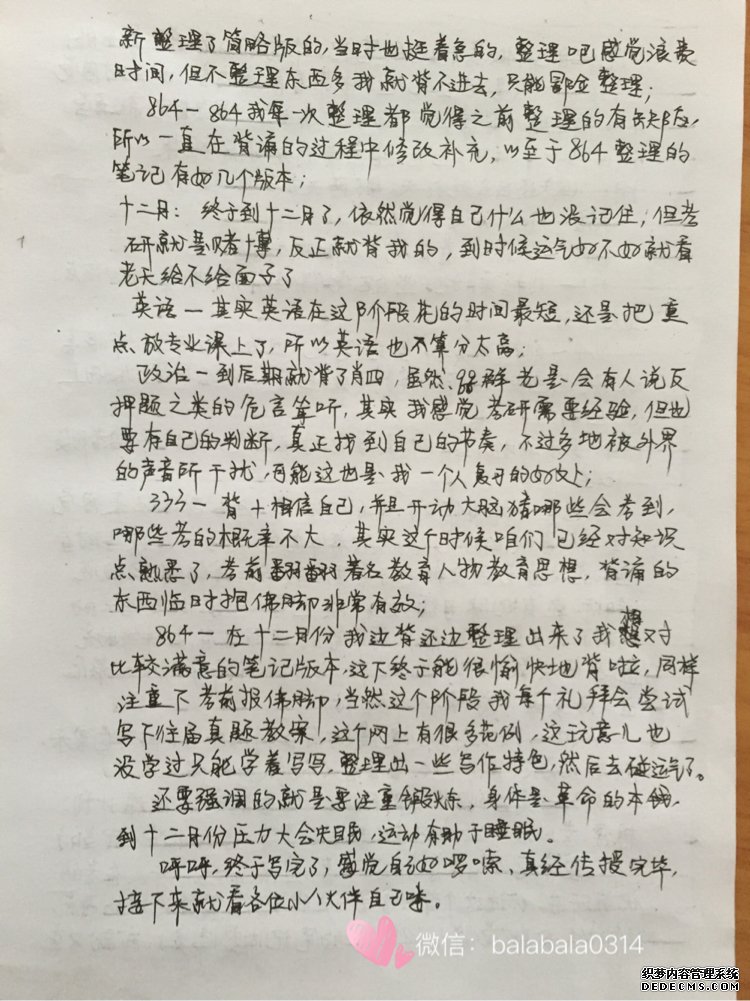 新整理了简略版的,当时也挺着急的,整理吧感觉浪费
时间,但不整理东西多我就背不进去,只能冒险整理;
864—864我每一次整理都觉得之前整理的有缺陷,
所以一直在背诵的过程中修改补充,以至于864整理的
笔记有好几个版本;
十二月:终于到十二月了,依然觉得自己什么也没记住,但考
研就是赌博,反正就背我的,到时候运气好不好就看
老天给不给面子了
英语—其实英语在这阶段花的时间最短,还是把重
点放专业课上了,所以英语也不算分太高;
政治—到后期就背了肖四,虽然qq群总是会有人说反
押题之类的危言耸听,其实我感觉考研需要经验,但也
要有自己的判断,真正找到自己的节奏,不过多地被外界
的声音所干扰,可能这也是我一个人复习的好处;
333—背+相信自己,并且开动大脑猜哪些会考到,
哪些考的概率不大,其实这个时候咱们已经对知识
点熟悉了,考前翻翻著名教育人物教育思想,背诵的
东西临时抱佛脚非常有效;
864—在十二月份我边背还边整理出来了我想对
比较满意的笔记版本,这下终于能很愉快地背啦,同样
注重下考前报佛脚,当然这个阶段我每个礼拜会尝试
写下往届真题教案,这个网上有很多范例,这玩意儿也
没学过只能学着写写,整理出一些写作特色,然后去碰运气了。
还要强调的就是要注重锻炼,身体是革命的本钱,
到十二月份压力大会失眠,运动有助于睡眠。
呼呼,终于写完了,感觉自己好啰嗦、真经传授完毕,
接下来就看各位小伙伴自己咯。
微信:balabala0314
织梦内容管理系统
DEDECMS.COM